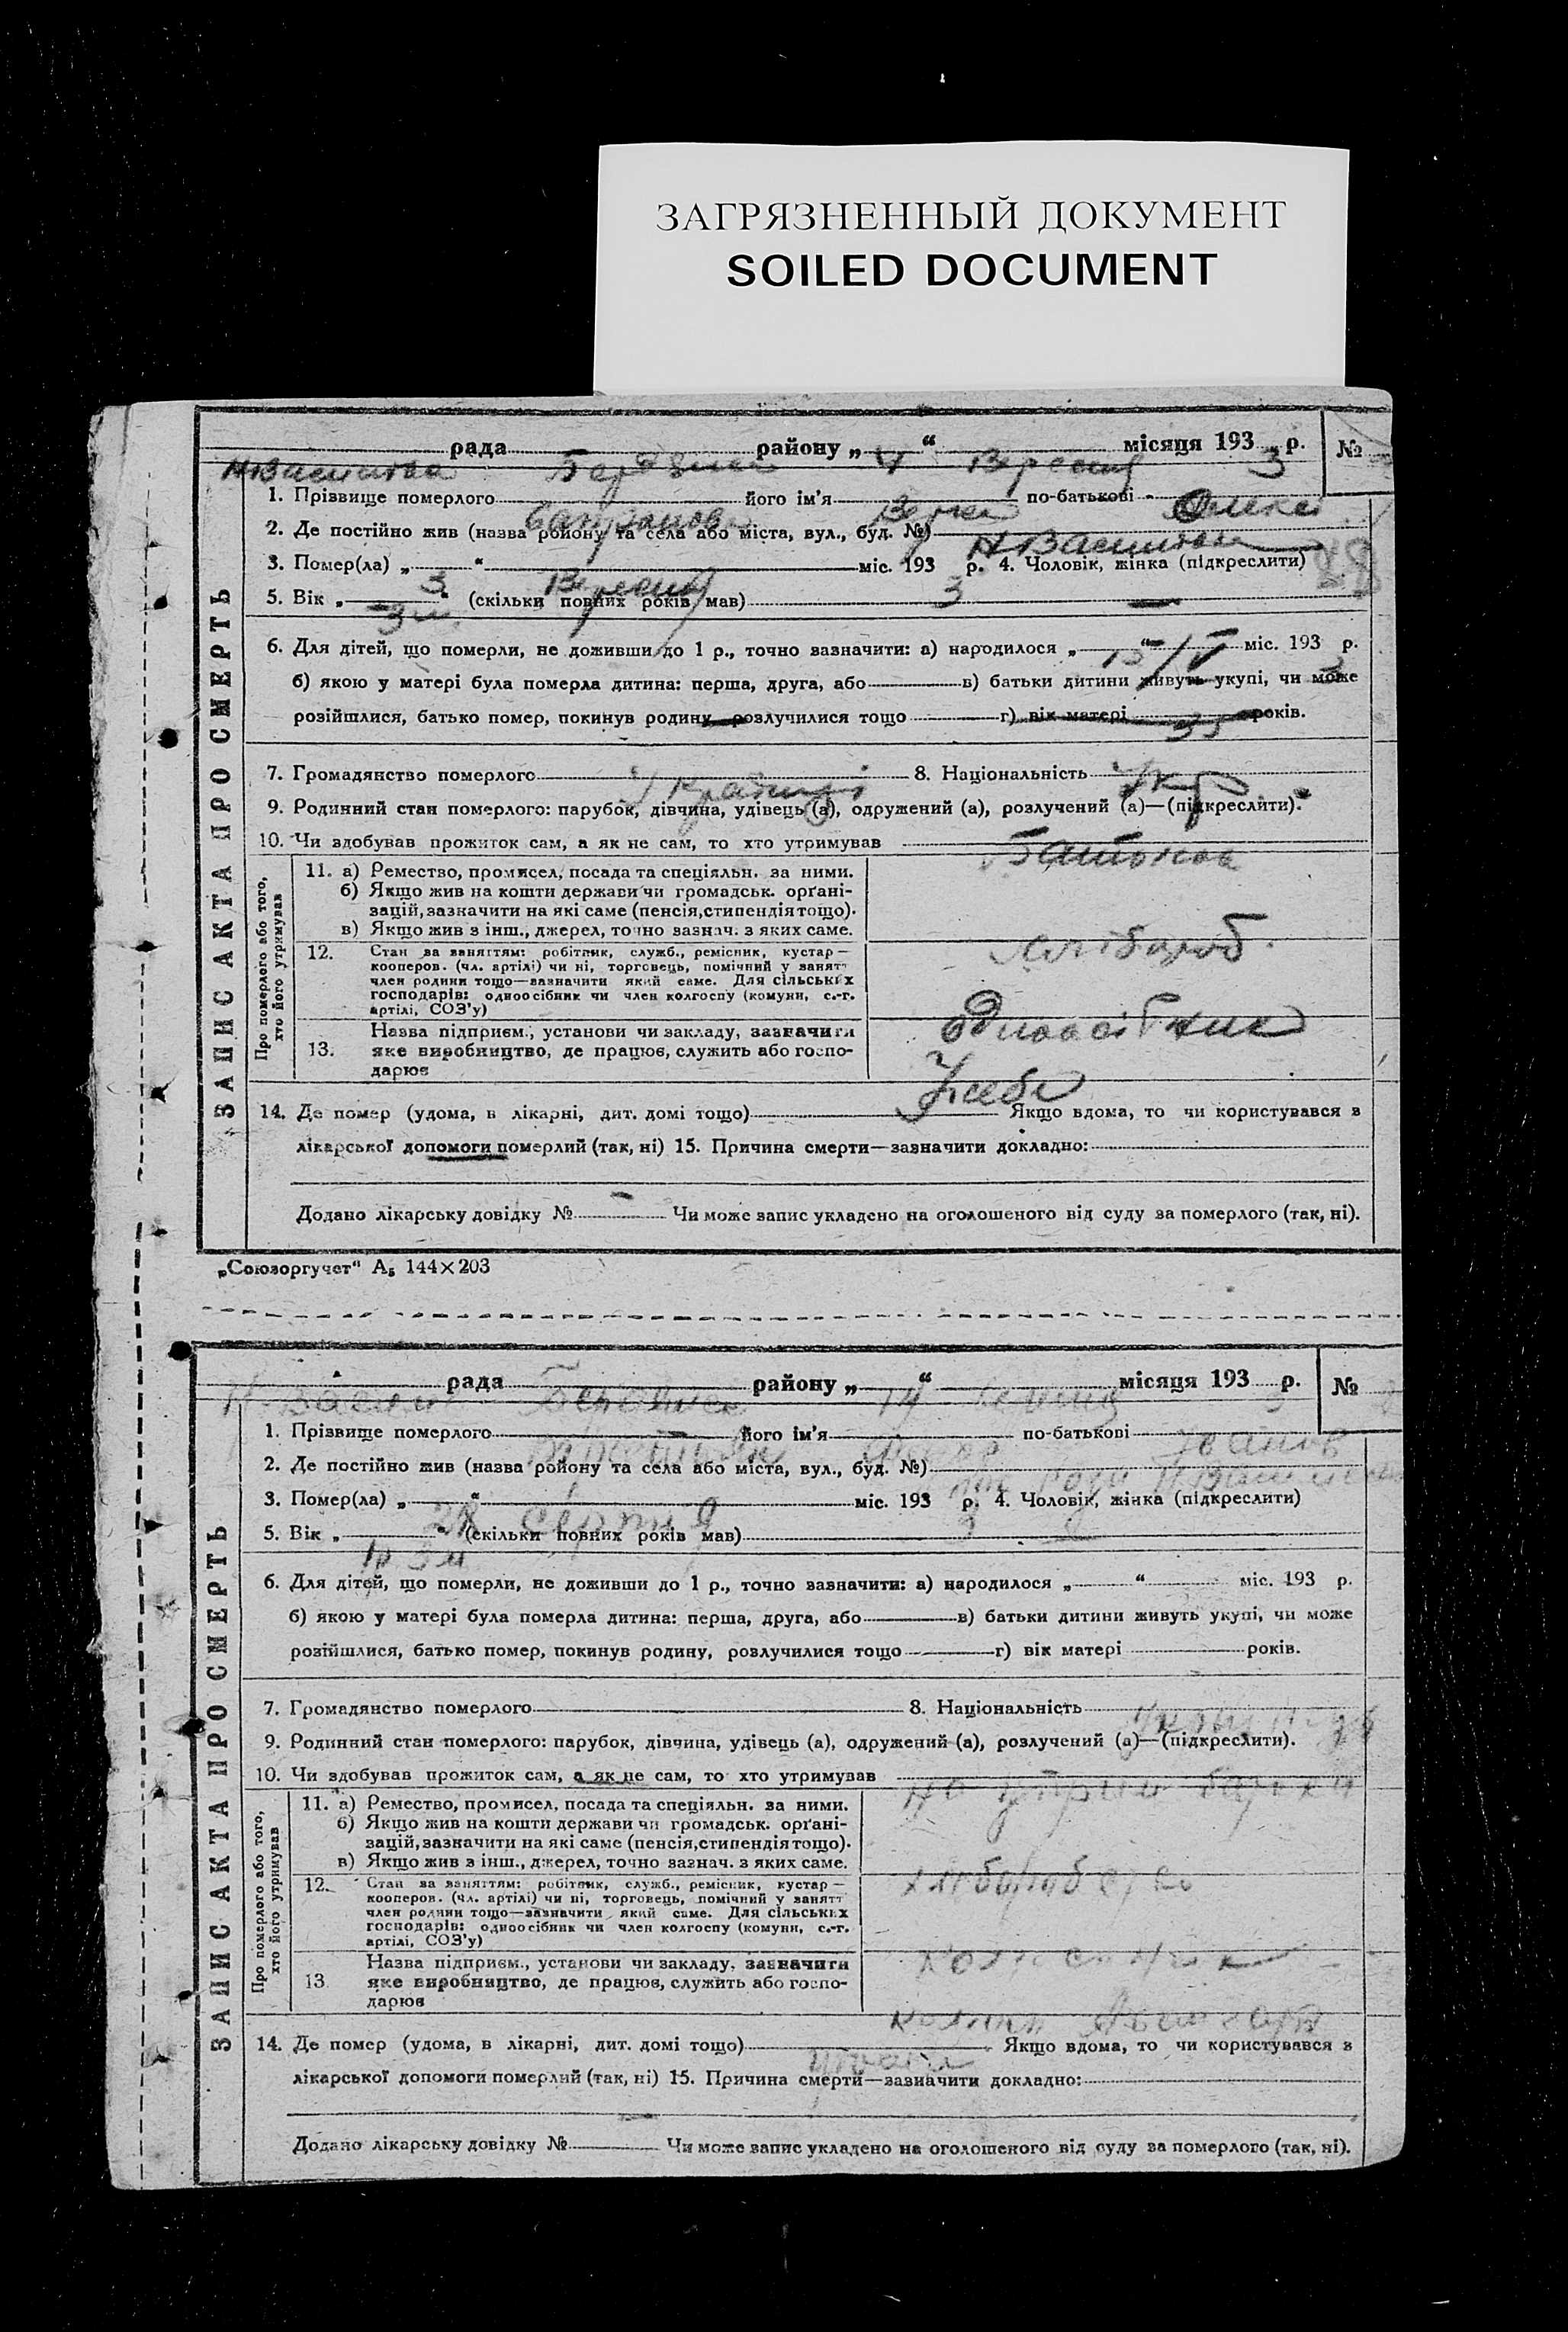 ЗАГРЯЗНЕННЫЙ ДОКУМЕНТ
SOILED DOCUMENT
рада району „ “ місяця 193 р. №
4 Вересня 3
1. Прізвище померлого його ім'я по-батькові
2. Де постійно жив (назва району та села або міста, вул., буд. №)
3. Помер(ла) „ “ міс. 193 р. 4. Чоловік, жінка (підкреслити)
3 Вересня 3
5. Вік „ “ (скільки повних років мав)
3 м.
6. Для дітей, що померли, не доживши до 1 р., точно зазначити: а) народилося „ 15/V “ міс. 193 3 р.
б) якою у матері була померла дитина: перша, друга, або в) батьки дитини живуть укупі, чи може
розійшлися, батько помер, покинув родину, розлучилися тощо г) вік матері 35 років.
7. Громадянство померлого 8. Національність Укр
9. Родинний стан померлого: парубок, дівчина, удівець (а), одружений (а), розлучений (а)—(підкреслити).
10. Чи здобував прожиток сам, а як не сам, то хто утримував
ЗАПИС АКТА ПРО СМЕРТЬ
Про померлого або того, хто його утримував
11. а) Ремество, промисел, посада та спеціяльн. за ними.
б) Якщо жив на кошти держави чи громадськ. орґані-
зацій, зазначити на які саме (пенсія, стипендія тощо).
в) Якщо жив з інш., джерел, точно зазнач. з яких саме.
хлібороб.
12. Стан за заняттям: робітник, служб., ремісник, кустар—
кооперов. (чл. артілі) чи ні, торговець, помічний у занятт
член родини тощо—зазначити який саме. Для сільських
господарів: одноосібник чи член колгоспу (комуни, с.-г.
артілі, СОЗ'у)
одноосібник
13. Назва підприєм., установи чи закладу, зазначити
яке виробництво, де працює, служить або госпо-
дарює
У себе
14. Де помер (удома, в лікарні, дит. домі тощо) Якщо вдома, то чи користувався з
лікарської допомоги померлий (так, ні) 15. Причина смерти—зазначити докладно:
Додано лікарську довідку № Чи може запис укладено на оголошеного від суду за померлого (так, ні).
„Союзоргучет“ А₅ 144×203
рада району „ “ місяця 193 р. №
1. Прізвище померлого його ім'я по-батькові
2. Де постійно жив (назва району та села або міста, вул., буд. №)
3. Помер(ла) „ “ міс. 193 р. 4. Чоловік, жінка (підкреслити)
28 серпня 3
5. Вік „ “ (скільки повних років мав)
6. Для дітей, що померли, не доживши до 1 р., точно зазначити: а) народилося „ “ міс. 193 р.
б) якою у матері була померла дитина: перша, друга, або в) батьки дитини живуть укупі, чи може
розійшлися, батько помер, покинув родину, розлучилися тощо г) вік матері років.
7. Громадянство померлого 8. Національність
9. Родинний стан померлого: парубок, дівчина, удівець (а), одружений (а), розлучений (а)—(підкреслити).
10. Чи здобував прожиток сам, а як не сам, то хто утримував
ЗАПИС АКТА ПРО СМЕРТЬ
Про померлого або того, хто його утримував
11. а) Ремество, промисел, посада та спеціяльн. за ними.
б) Якщо жив на кошти держави чи громадськ. орґані-
зацій, зазначити на які саме (пенсія, стипендія тощо).
в) Якщо жив з інш., джерел, точно зазнач. з яких саме.
12. Стан за заняттям: робітник, служб., ремісник, кустар—
кооперов. (чл. артілі) чи ні, торговець, помічний у занятт
член родини тощо—зазначити який саме. Для сільських
господарів: одноосібник чи член колгоспу (комуни, с.-г.
артілі, СОЗ'у)
13. Назва підприєм., установи чи закладу, зазначити
яке виробництво, де працює, служить або госпо-
дарює
14. Де помер (удома, в лікарні, дит. домі тощо) Якщо вдома, то чи користувався з
лікарської допомоги померлий (так, ні) 15. Причина смерти—зазначити докладно:
Додано лікарську довідку № Чи може запис укладено на оголошеного від суду за померлого (так, ні).